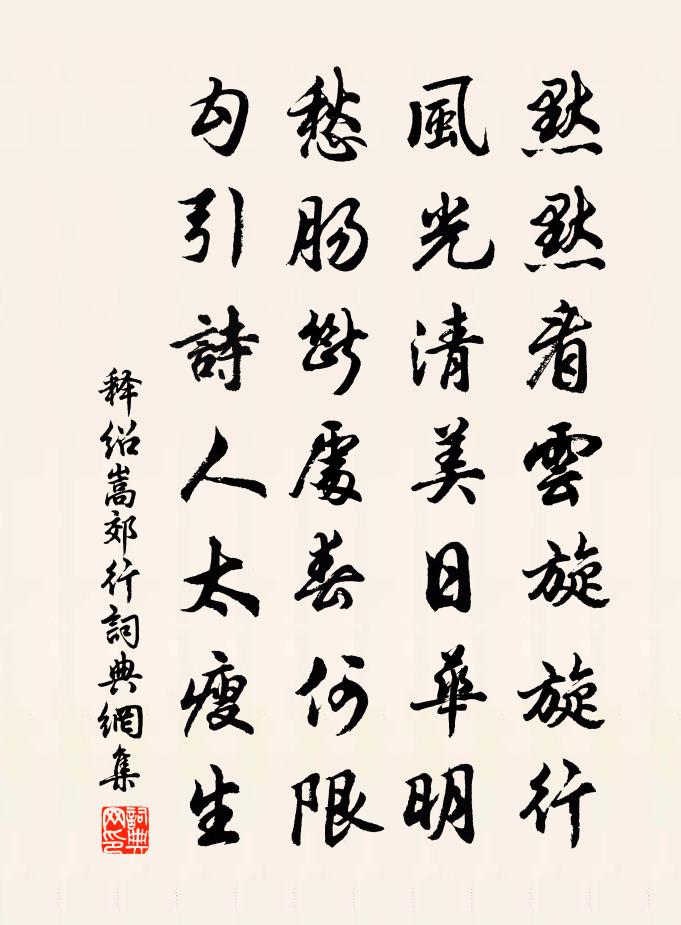 黙黙看雲旋旋行
風光清美日華明
愁腸斷處春何限
勾引詩人太瘦生
释绍嵩郊行詞典網集
詞典網印